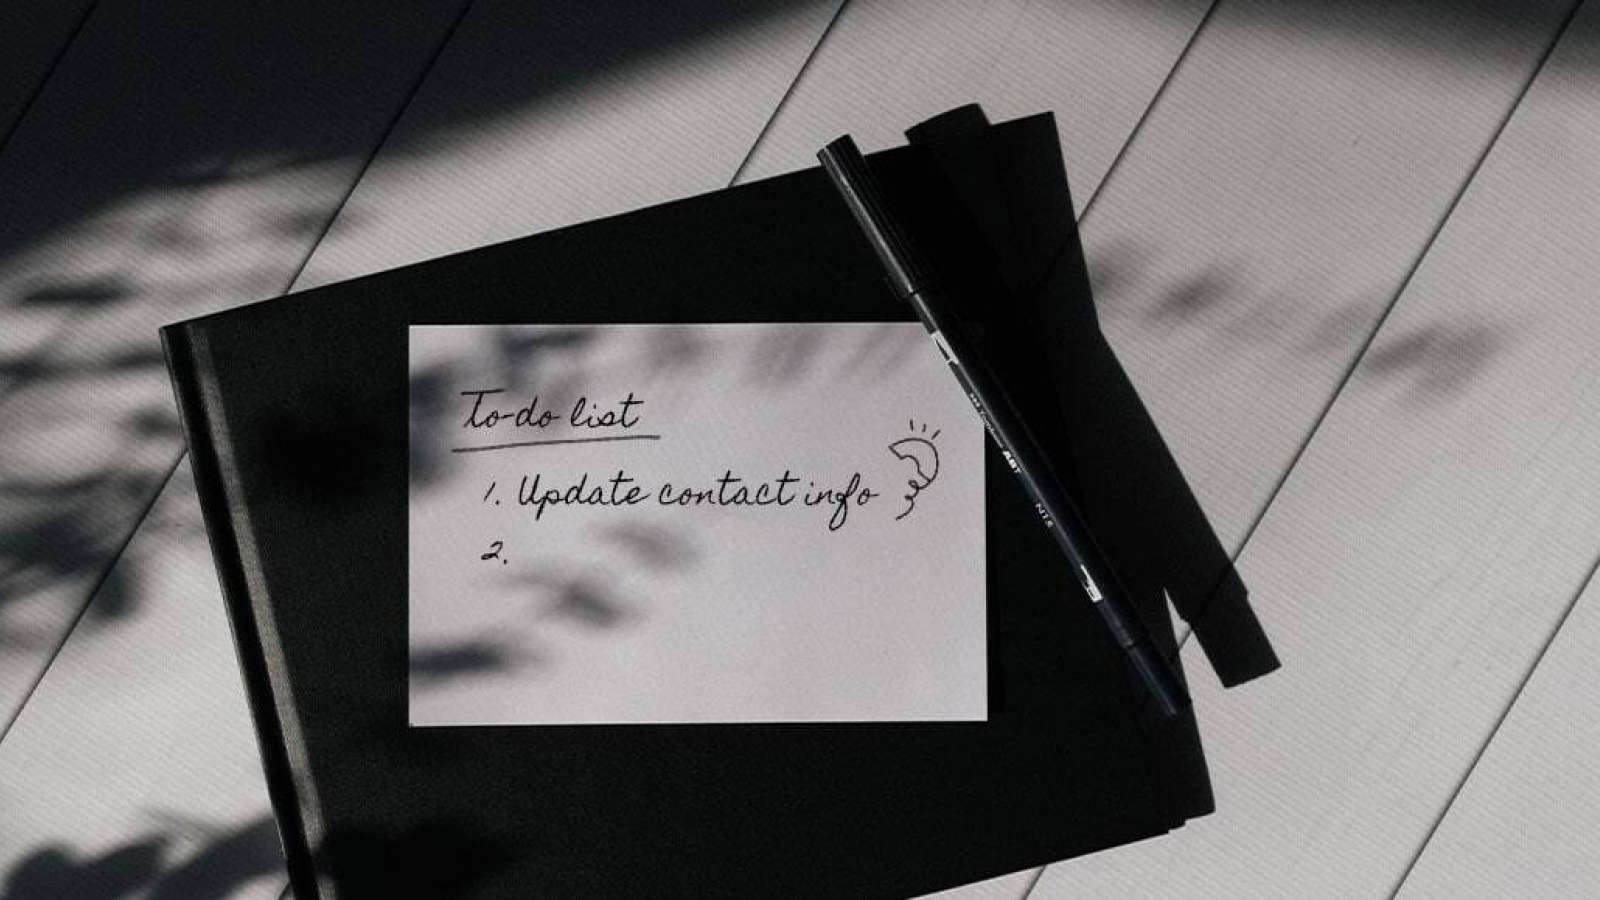 To-do list
1. Update contact info
2.
ABT
N15